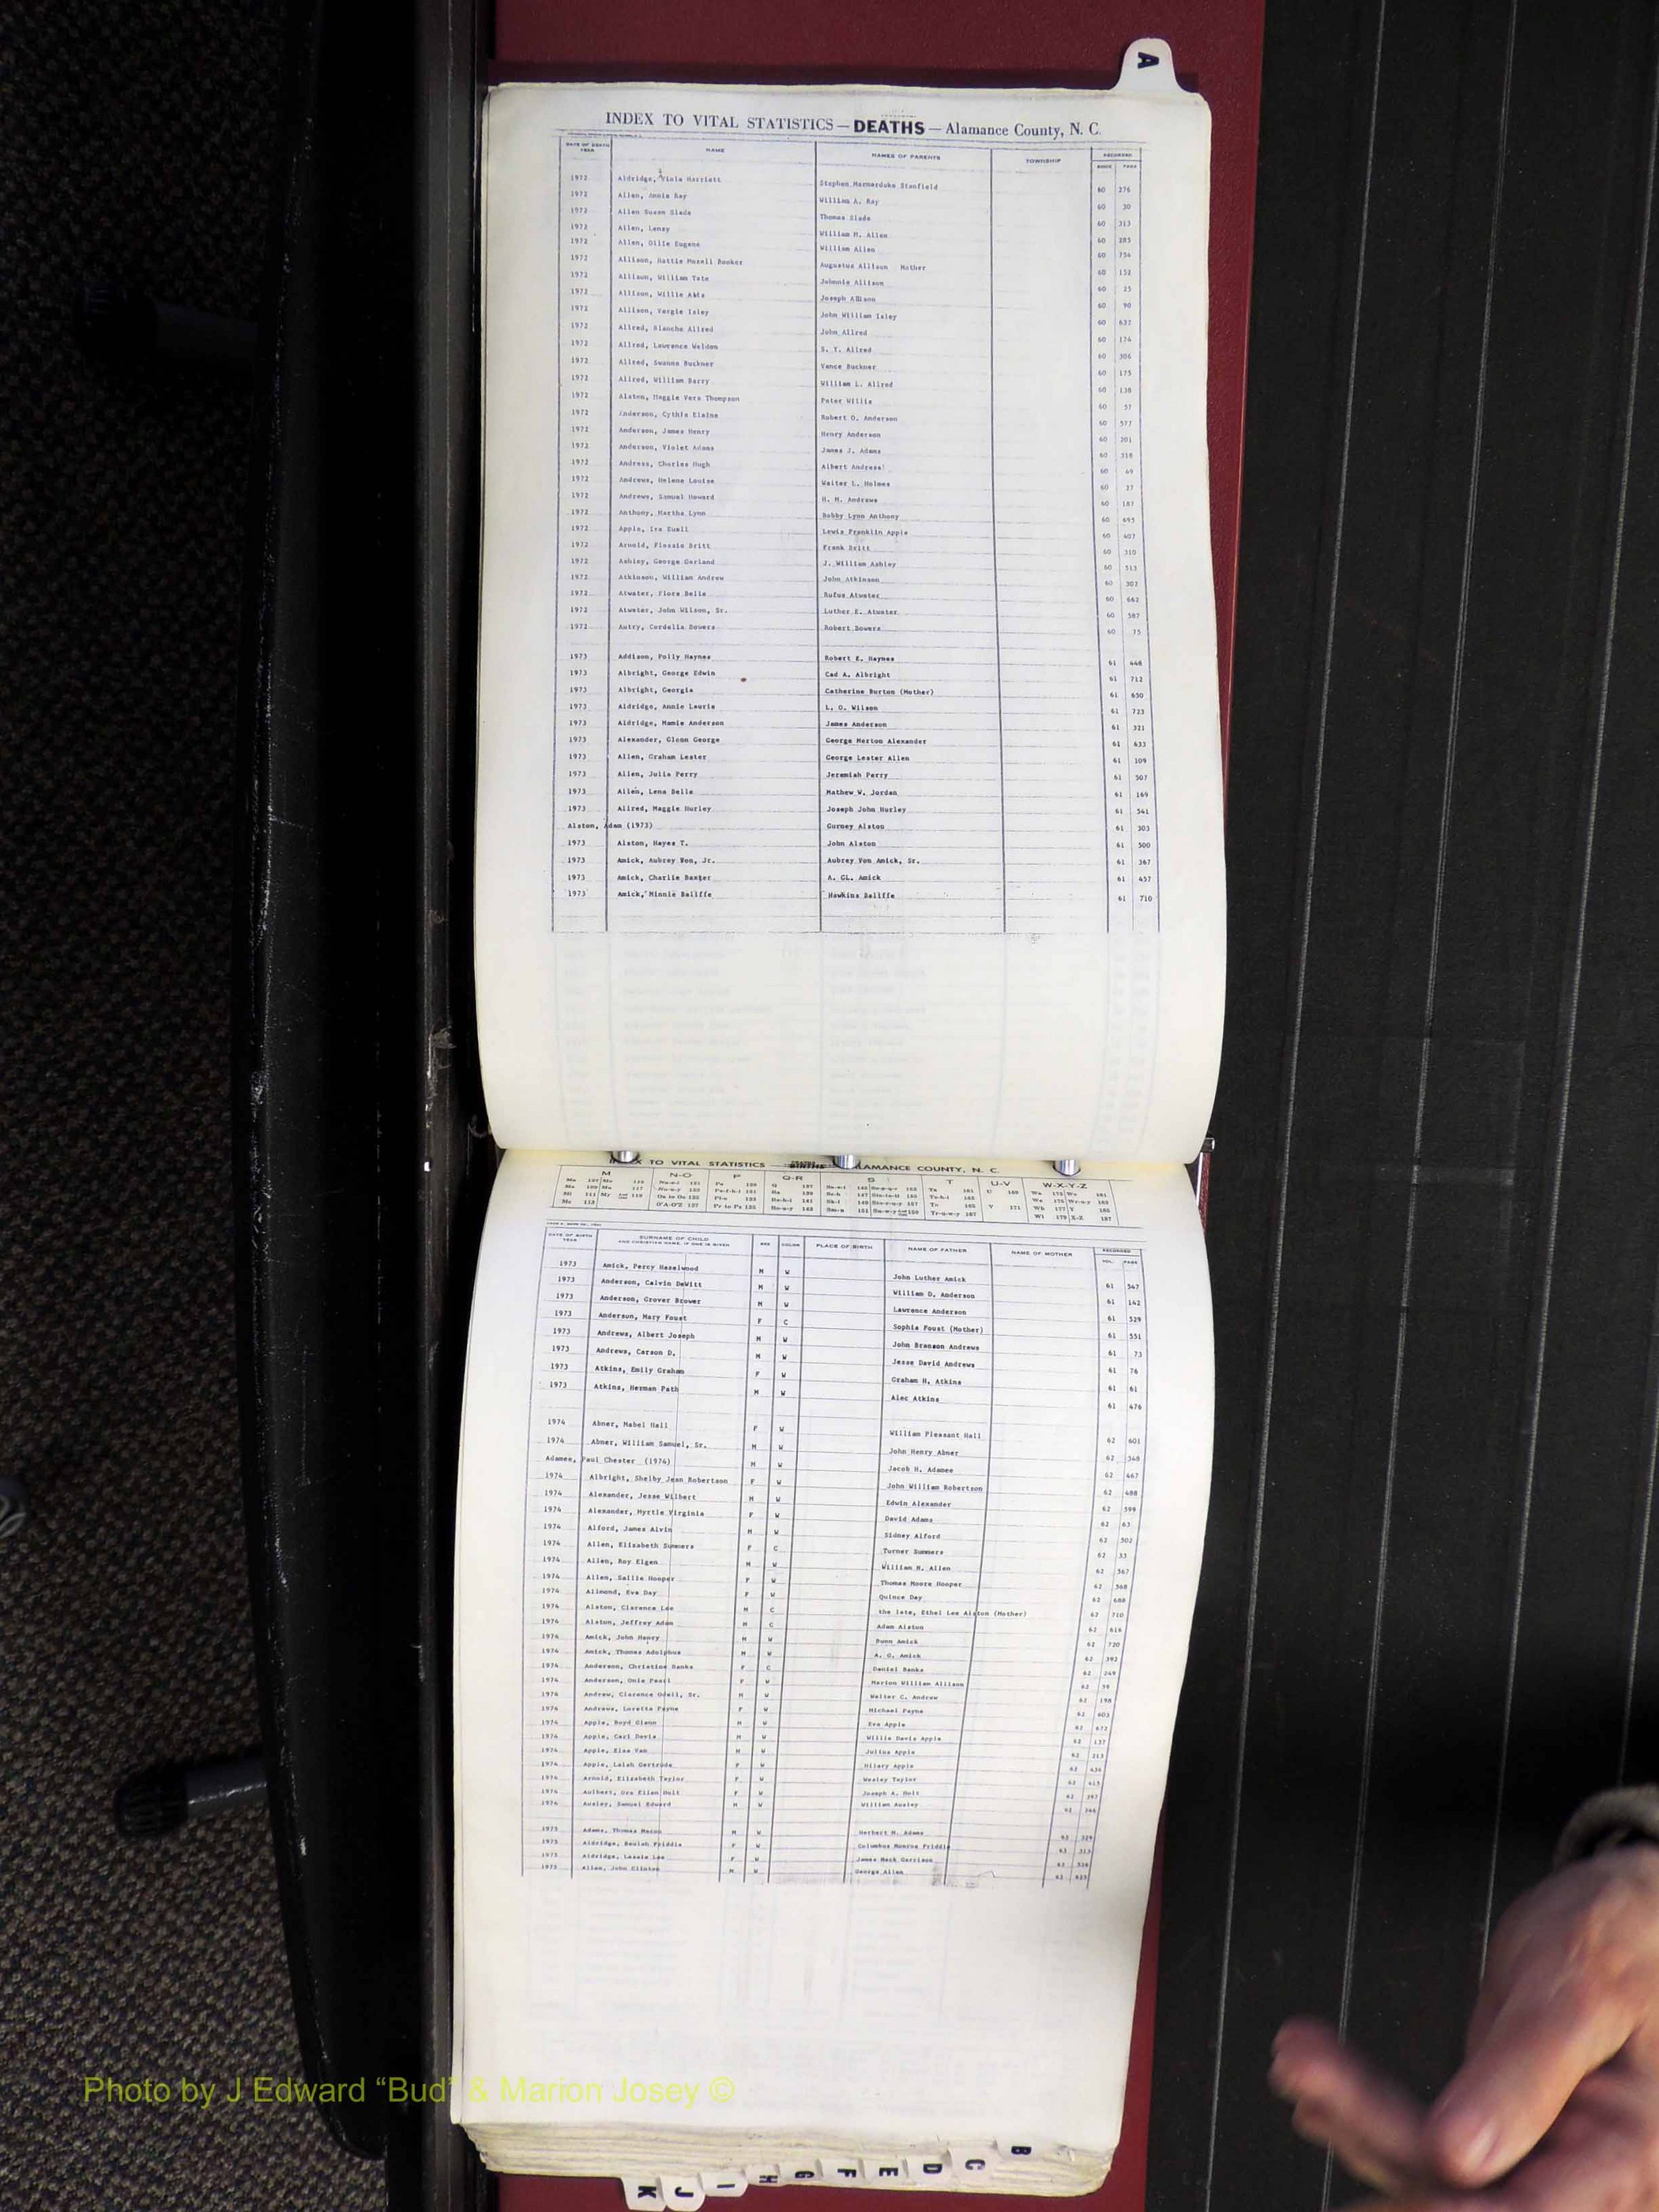 A
INDEX TO VITAL STATISTICS — DEATHS — Alamance County, N. C.
DATE OF DEATH YEAR NAME NAMES OF PARENTS TOWNSHIP RECORDED BOOK PAGE
1972 Aldridge, Viola Harriett Stephen Marmarduke Stanfield 60 276
1972 Allen, Annie Ray William A. Ray 60 30
1972 Allen Susan Slade Thomas Slade 60 313
1972 Allen, Laney William H. Allen 60 285
1972 Allen, Ollie Eugene William Allen 60 754
1972 Allison, Hattie Mozell Booker Augustus Allison Mother 60 152
1972 Allison, William Tate Johnnie Allison 60 25
1972 Allison, Willie Joseph Allison 60 90
1972 Allison, Vergie Isley John William Isley 60 632
1972 Allred, Blanche Allred John Allred 60 174
1972 Allred, Lawrence Weldon S. Y. Allred 60 306
1972 Allred, Swanna Buckner Vance Buckner 60 175
1972 Allred, William Barry William L. Allred 60 138
1972 Alston, Maggie Vera Thompson Peter Willis 60 57
1972 Anderson, Cythia Elaine Robert O. Anderson 60 577
1972 Anderson, James Henry Henry Anderson 60 201
1972 Anderson, Violet Adams James J. Adams 60 318
1972 Andress, Charles Hugh Albert Andress 60 49
1972 Andrews, Helene Louise Walter L. Holmes 60 27
1972 Andrews, Samuel Howard H. H. Andrews 60 187
1972 Anthony, Martha Lynn Bobby Lynn Anthony 60 695
1972 Apple, Ira Euell Lewis Franklin Apple 60 407
1972 Arnold, Flossie Britt Frank Britt 60 310
1972 Ashley, George Garland J. William Ashley 60 513
1972 Atkinson, William Andrew John Atkinson 60 302
1972 Atwater, Flora Belle Rufus Atwater 60 662
1972 Atwater, John Wilson, Sr. Luther E. Atwater 60 587
1972 Autry, Cordella Bowers Robert Bowers 60 75
1973 Addison, Polly Haynes Robert E. Haynes 61 448
1973 Albright, George Edwin Cad A. Albright 61 712
1973 Albright, Georgia Catherine Burton (Mother) 61 650
1973 Aldridge, Annie Laurie L. O. Wilson 61 723
1973 Aldridge, Mamie Anderson James Anderson 61 321
1973 Alexander, Glenn George George Merton Alexander 61 633
1973 Allen, Graham Lester George Lester Allen 61 109
1973 Allen, Julia Perry Jeremiah Perry 61 507
1973 Allen, Lena Belle Mathew W. Jordan 61 169
1973 Allred, Maggie Hurley Joseph John Hurley 61 541
Alston, Adam (1973) Gurney Alston 61 303
1973 Alston, Hayes T. John Alston 61 500
1973 Amick, Aubrey Von, Jr. Aubrey Von Amick, Sr. 61 367
1973 Amick, Charlie Baxter A. GL. Amick 61 457
1973 Amick, Minnie Bailffe Hawkins Bailffe 61 710
INDEX TO VITAL STATISTICS — BIRTHS ALAMANCE COUNTY, N. C.
M N-O P Q-R S T U-V W-X-Y-Z
DATE OF BIRTH YEAR SURNAME OF CHILD AND CHRISTIAN NAME, IF ONE IS GIVEN SEX COLOR PLACE OF BIRTH NAME OF FATHER NAME OF MOTHER RECORDED VOL. PAGE
1973 Amick, Percy Hazelwood M W John Luther Amick 61 547
1973 Anderson, Calvin DeWitt M W William D. Anderson 61 142
1973 Anderson, Grover Brower M W Lawrence Anderson 61 529
1973 Anderson, Mary Foust F C Sophia Foust (Mother) 61 551
1973 Andrews, Albert Joseph M W John Branson Andrews 61 73
1973 Andrews, Carson D. M W Jesse David Andrews 61 76
1973 Atkins, Emily Graham F W Graham H. Atkins 61 61
1973 Atkins, Herman Path M W Alec Atkins 61 476
1974 Abner, Mabel Hall F W William Pleasant Hall 62 601
1974 Abner, William Samuel, Sr. M W John Henry Abner 62 348
Adamee, Paul Chester (1974) M W Jacob H. Adamee 62 467
1974 Albright, Shelby Jean Robertson F W John William Robertson 62 488
1974 Alexander, Jesse Wilbert M W Edwin Alexander 62 599
1974 Alexander, Myrtle Virginia F W David Adams 62 63
1974 Alford, James Alvin M W Sidney Alford 62 502
1974 Allen, Elizabeth Summers F C Turner Summers 62 33
1974 Allen, Roy Elgen M W William N. Allen 62 567
1974 Allen, Sallie Hooper F W Thomas Moore Hooper 62 568
1974 Allmond, Eva Day F W Quince Day 62 688
1974 Alston, Clarence Lee M C the late, Ethel Lee Alston (Mother) 62 710
1974 Alston, Jeffrey Adam M C Adam Alston 62 616
1974 Amick, John Henry M W Dunn Amick 62 720
1974 Amick, Thomas Adolphus M W A. G. Amick 62 392
1974 Anderson, Christine Banks F C Daniel Banks 62 249
1974 Anderson, Onie Pearl F W Marion William Allison 62
1974 Andrew, Clarence Odell, Sr. M W Walter C. Andrew 62 198
1974 Andrews, Loretta Payne F W Michael Payne 62 603
1974 Apple, Boyd Glenn M W Eva Apple 62 672
1974 Apple, Carl Davis M W Willie Davis Apple 62 137
1974 Apple, Elas Van M W Julius Apple 62 213
1974 Apple, Lalah Gertrude F W Hilary Apple 62 436
1974 Arnold, Elizabeth Taylor F W Wesley Taylor 62 415
1974 Aulbert, Ora Ellen Holt F W Joseph A. Holt 62
1974 Ausley, Samuel Edward M W William Ausley 62
1975 Adams, Thomas Macon M W Herbert M. Adams 63 329
1975 Aldridge, Beulah Friddle F W Columbus Monroe Friddle 63 313
1975 Aldridge, Lessie Lee F W James Mack Garrison 63
1975 Allen, John Clinton M W George Allen
Photo by J Edward “Bud” & Marion Josey ©
B
C
D
E
F
G
H
I
J
K